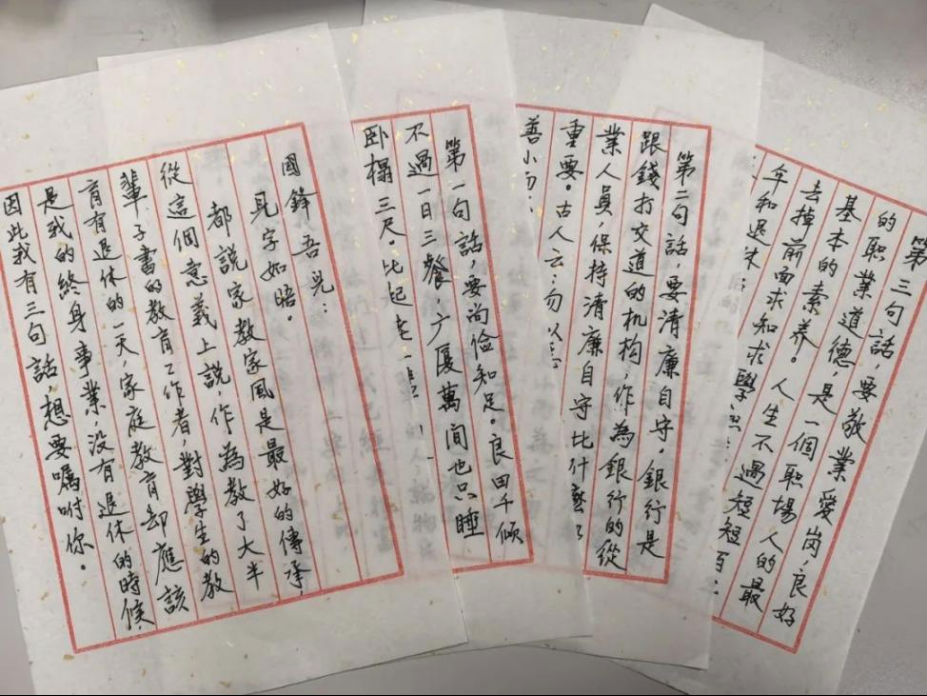 國鋒吾兒:
見字如晤。
都説家教家風是最好的傳承,
從這個意義上説,作為教了大半
輩子書的教育工作者,對學生的教
育有退休的一天,家庭教育却應該
是我的終身事業,没有退休的時候,
因此我有三句話,想要囑咐你。
第一句話,要尚儉知足。良田千傾
不過一日三餐,广厦萬間也只睡
卧榻三尺。比起老一
第二句話,要清廉自守。銀行是
跟錢打交道的机构,作為銀行的從
業人員,保持清廉自守比什麽
重要。古人云:勿以
善小而
第三句話,要敬業爱岗,良好
的职業道德,是一個职場人的最
基本的素养。人生不過短短百
去掉前面求知求學
年和退休